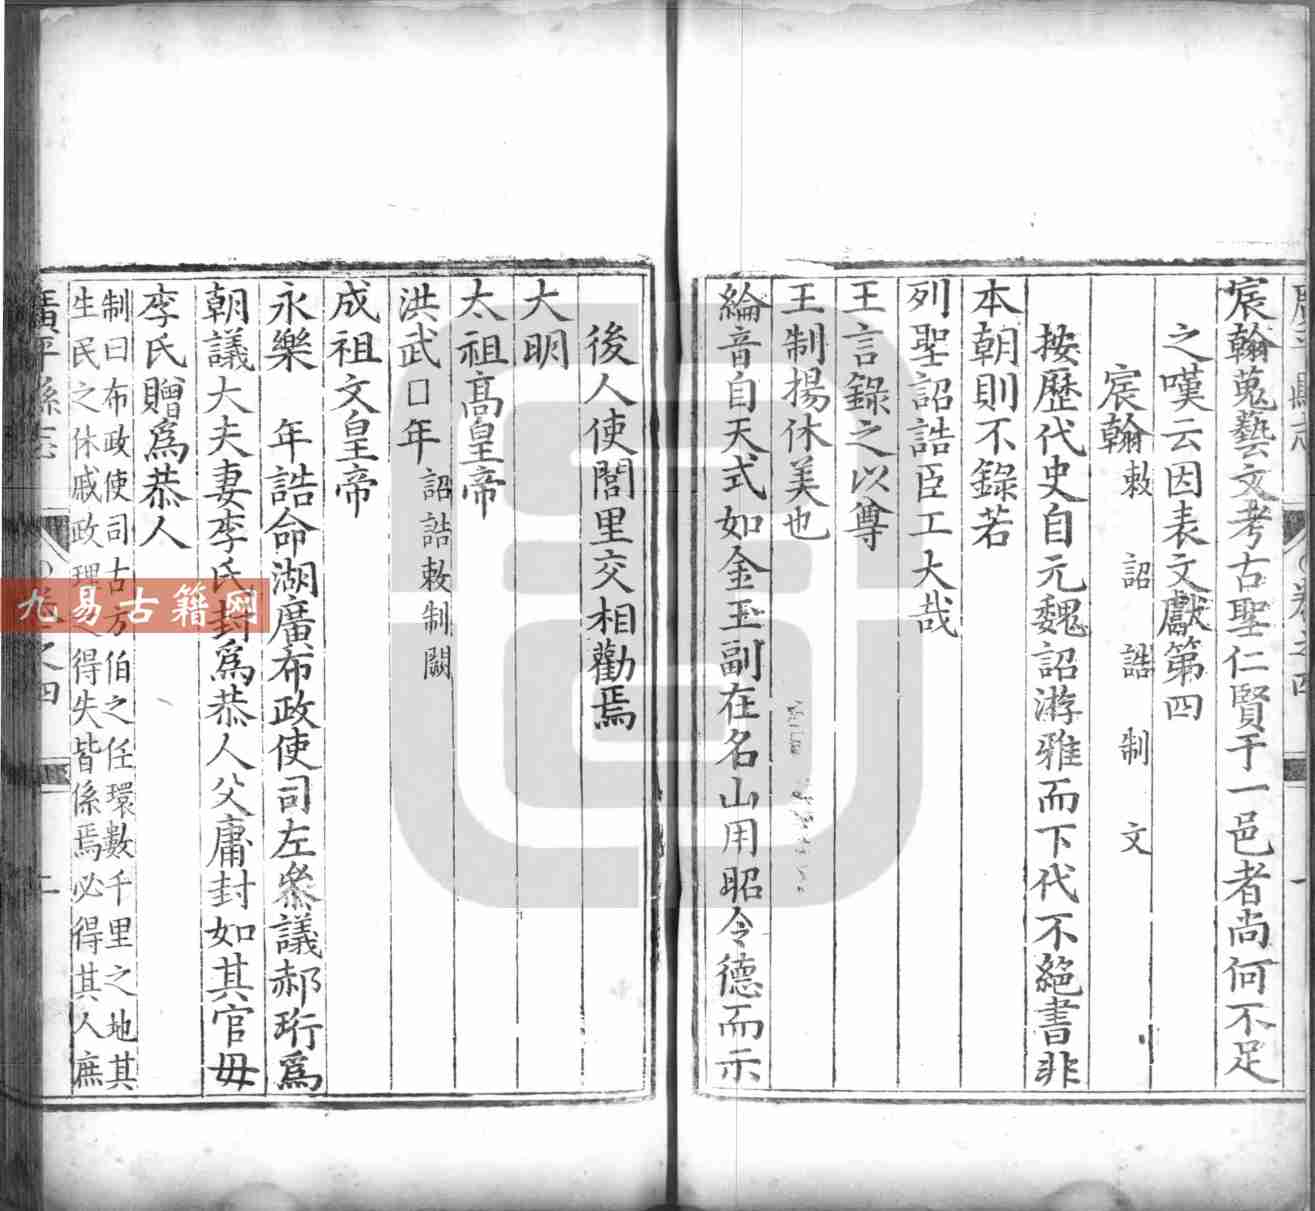 宸翰蒐藝文考古聖仁賢于一邑者尚何不足
之嘆云因表文獻第四
宸翰 敕 詔 誥 制 文
按歷代史自元魏詔游雅而下代不絕書非
本朝則不錄若
列聖詔誥臣工大哉
王言錄之以尊
王制揚休美也
綸音自天式如金玉副在名山用昭令德而示
後人使閭里交相勸焉
大明
太祖高皇帝
洪武□年 詔誥敕制闕
成祖文皇帝
永樂 年誥命湖廣布政使司左叅議郝珩爲
朝議大夫妻李氏封爲恭人父庸封如其官毋
李氏贈爲恭人
制曰布政使司古方伯之任環數千里之地其
生民之休戚政理之得失皆係焉必得其人庶
廣平縣志 卷之四 二
卷之四 一
九易古籍网